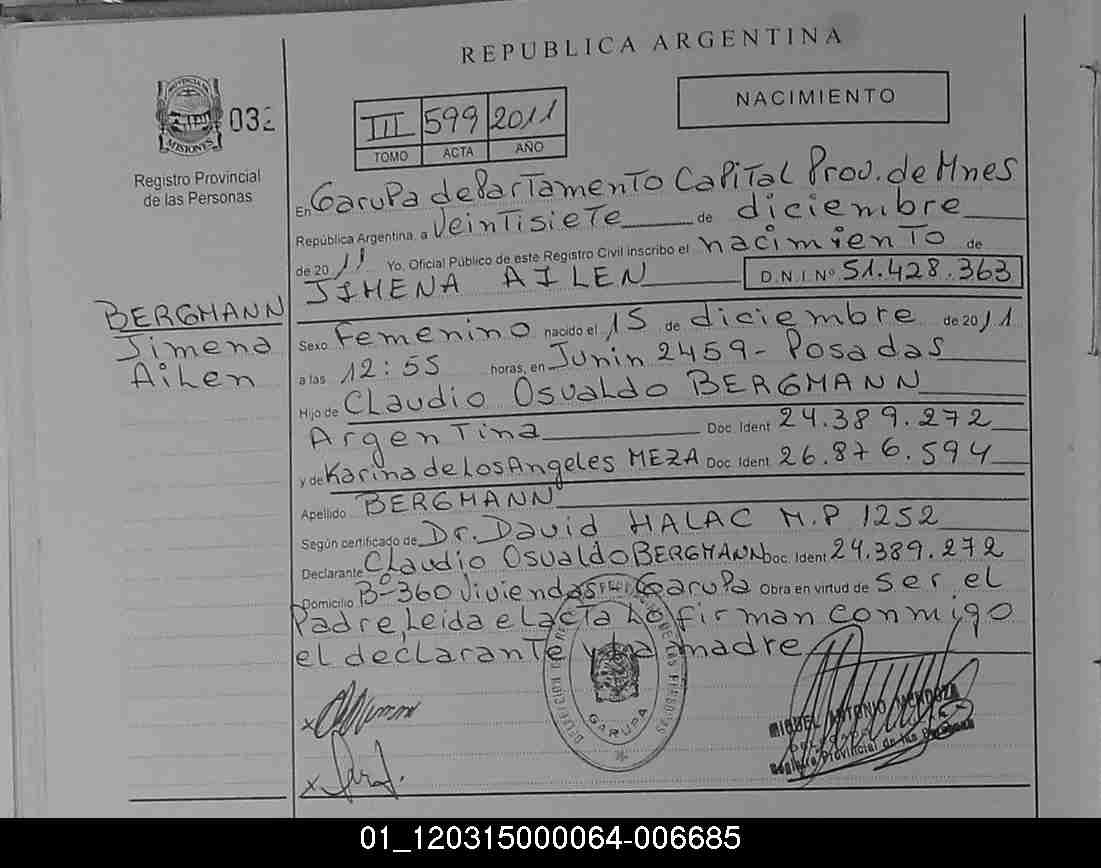 REPUBLICA ARGENTINA
PROVINCIA DE
MISIONES
032
Registro Provincial
de las Personas
III 599 2011
TOMO ACTA AÑO
NACIMIENTO
En Garupa departamento Capital Prov. de Mnes
República Argentina, a Veintisiete de diciembre
de 2011 Yo, Oficial Público de este Registro Civil inscribo el nacimiento de
JIMENA AILEN D.N.I Nº 51.428.363
BERGMANN
Jimena
Ailen
Sexo Femenino nacido el 15 de diciembre de 2011
a las 12:55 horas, en Junin 2459 - Posadas
Hijo de Claudio Osvaldo BERGMANN
Argentina Doc. Ident 24.389.272
y de Karina de Los Angeles MEZA Doc. Ident 26.876.594
Apellido BERGMANN
Según certificado de Dr. David HALAC M.P 1252
Declarante Claudio Osvaldo BERGMANN Doc. Ident 24.389.272
Domicilio Bº 360 Viviendas Garupa Obra en virtud de ser el
Padre, Leida el acta Lo firman conmigo
el declarante y La madre
GARUPA
MIGUEL ANTONIO MENDOZA
Registro Provincial de las Personas
01_120315000064-006685